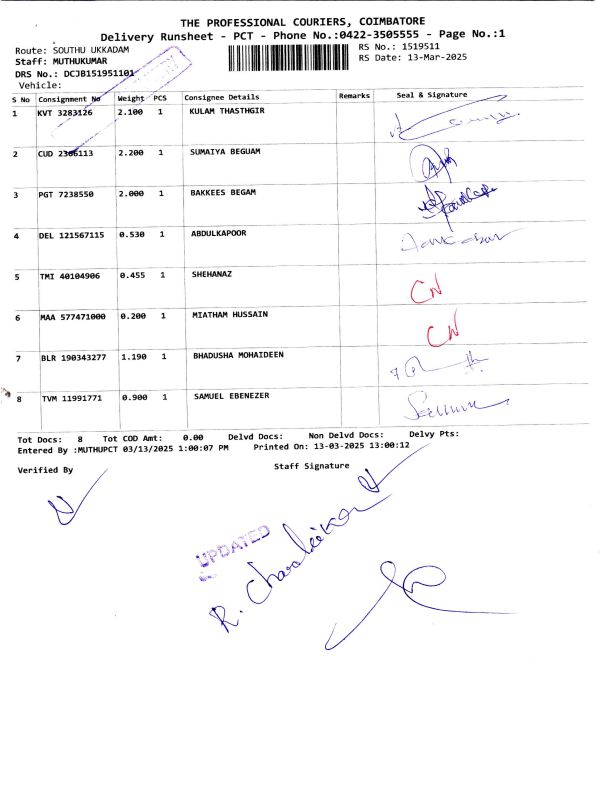 THE PROFESSIONAL COURIERS, COIMBATORE
Delivery Runsheet - PCT - Phone No.:0422-3505555 - Page No.:1
Route: SOUTHU UKKADAM RS No.: 1519511
Staff: MUTHUKUMAR RS Date: 13-Mar-2025
DRS No.: DCJB151951101
Vehicle:
S No Consignment No Weight PCS Consignee Details Remarks Seal & Signature
1 KVT 3283126 2.100 1 KULAM THASTHGIR
2 CUD 2306113 2.200 1 SUMAIYA BEGUAM
3 PGT 7238550 2.000 1 BAKKEES BEGAM
4 DEL 121567115 0.530 1 ABDULKAPOOR
5 TMI 40104906 0.455 1 SHEHANAZ CN
6 MAA 577471000 0.200 1 MIATHAM HUSSAIN CN
7 BLR 190343277 1.190 1 BHADUSHA MOHAIDEEN
8 TVM 11991771 0.900 1 SAMUEL EBENEZER
Tot Docs: 8 Tot COD Amt: 0.00 Delvd Docs: Non Delvd Docs: Delvy Pts:
Entered By :MUTHUPCT 03/13/2025 1:00:07 PM Printed On: 13-03-2025 13:00:12
Verified By Staff Signature
UPDATED